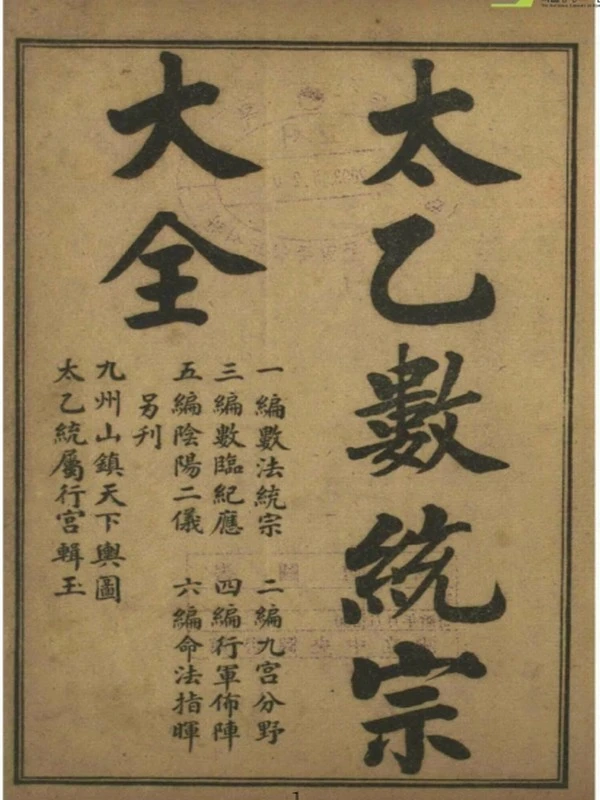 太乙數統宗
大全
一編數法統宗 二編九宮分野
三編數臨紀應 四編行軍佈陣
五編陰陽二儀 六編命法指暉
另刊
九州山鎮天下輿圖
太乙統屬行宮輯玉
1